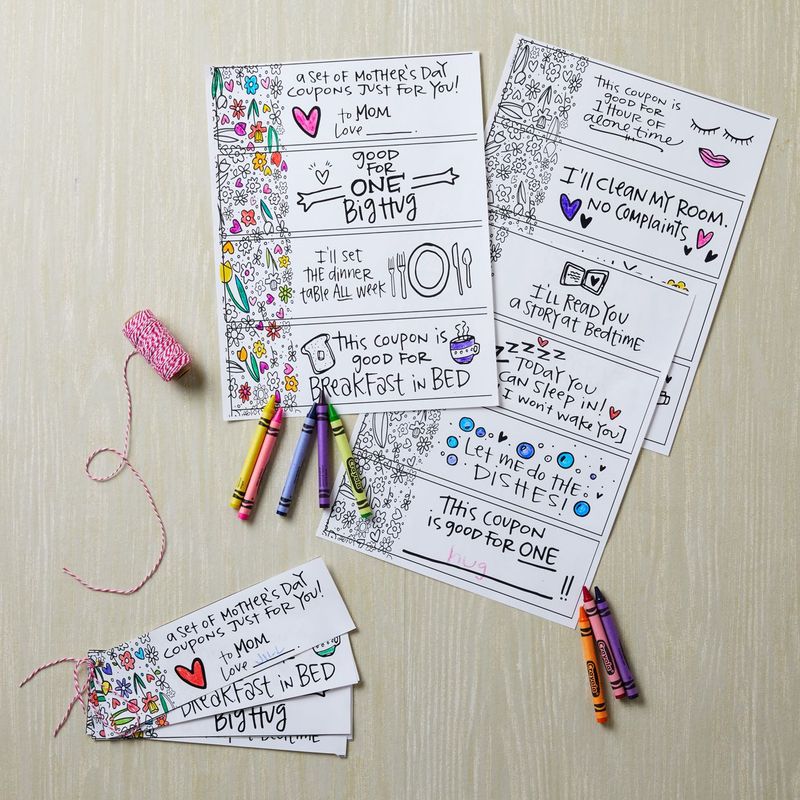 a set of Mother's Day
coupons just for you!
to Mom
Love
good
for
one
Big Hug
I'll set
the dinner
table all week
This coupon is
good for
Breakfast in Bed
This coupon is
good for
1 hour of
alone time
I'll clean my room.
No complaints
I'll read you
a story at bedtime
zzzzz
Today you
can sleep in!
I won't wake you]
Let me do the
dishes!
This coupon
is good for one
hug
!!
Crayola
Crayola
Crayola
a set of Mother's Day
coupons just for you!
to Mom
Love
Breakfast in Bed
Big Hug
Bedtime